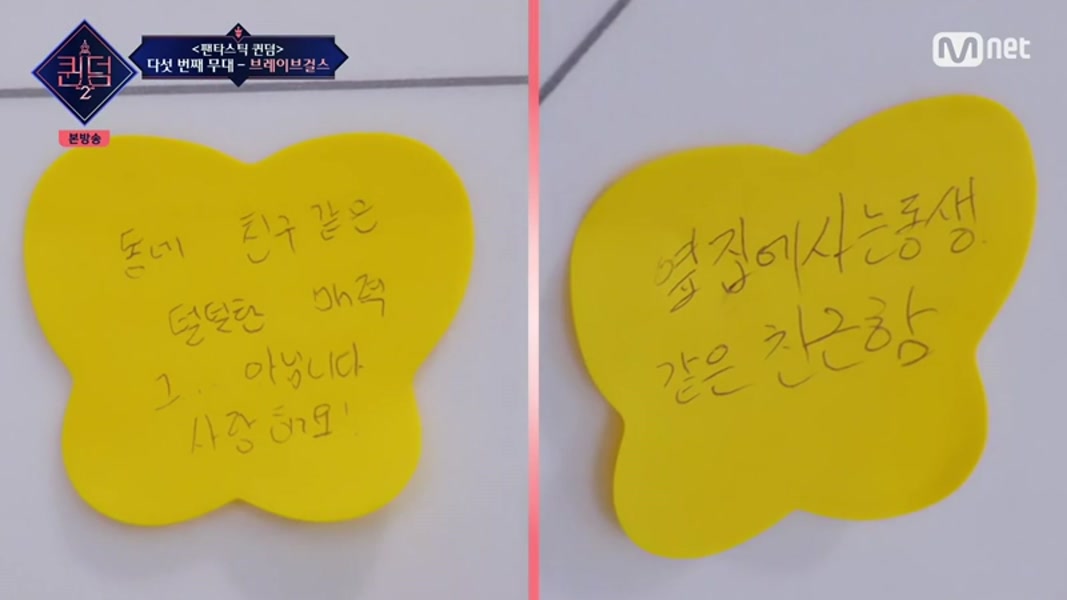 퀸덤
2
본방송
<팬타스틱 퀸덤>
다섯 번째 무대 - 브레이브걸스
Mnet
동네 친구 같은
털털한 매력
그.. 아닙니다
사랑해요!
옆집에 사는 동생.
같은 친근함